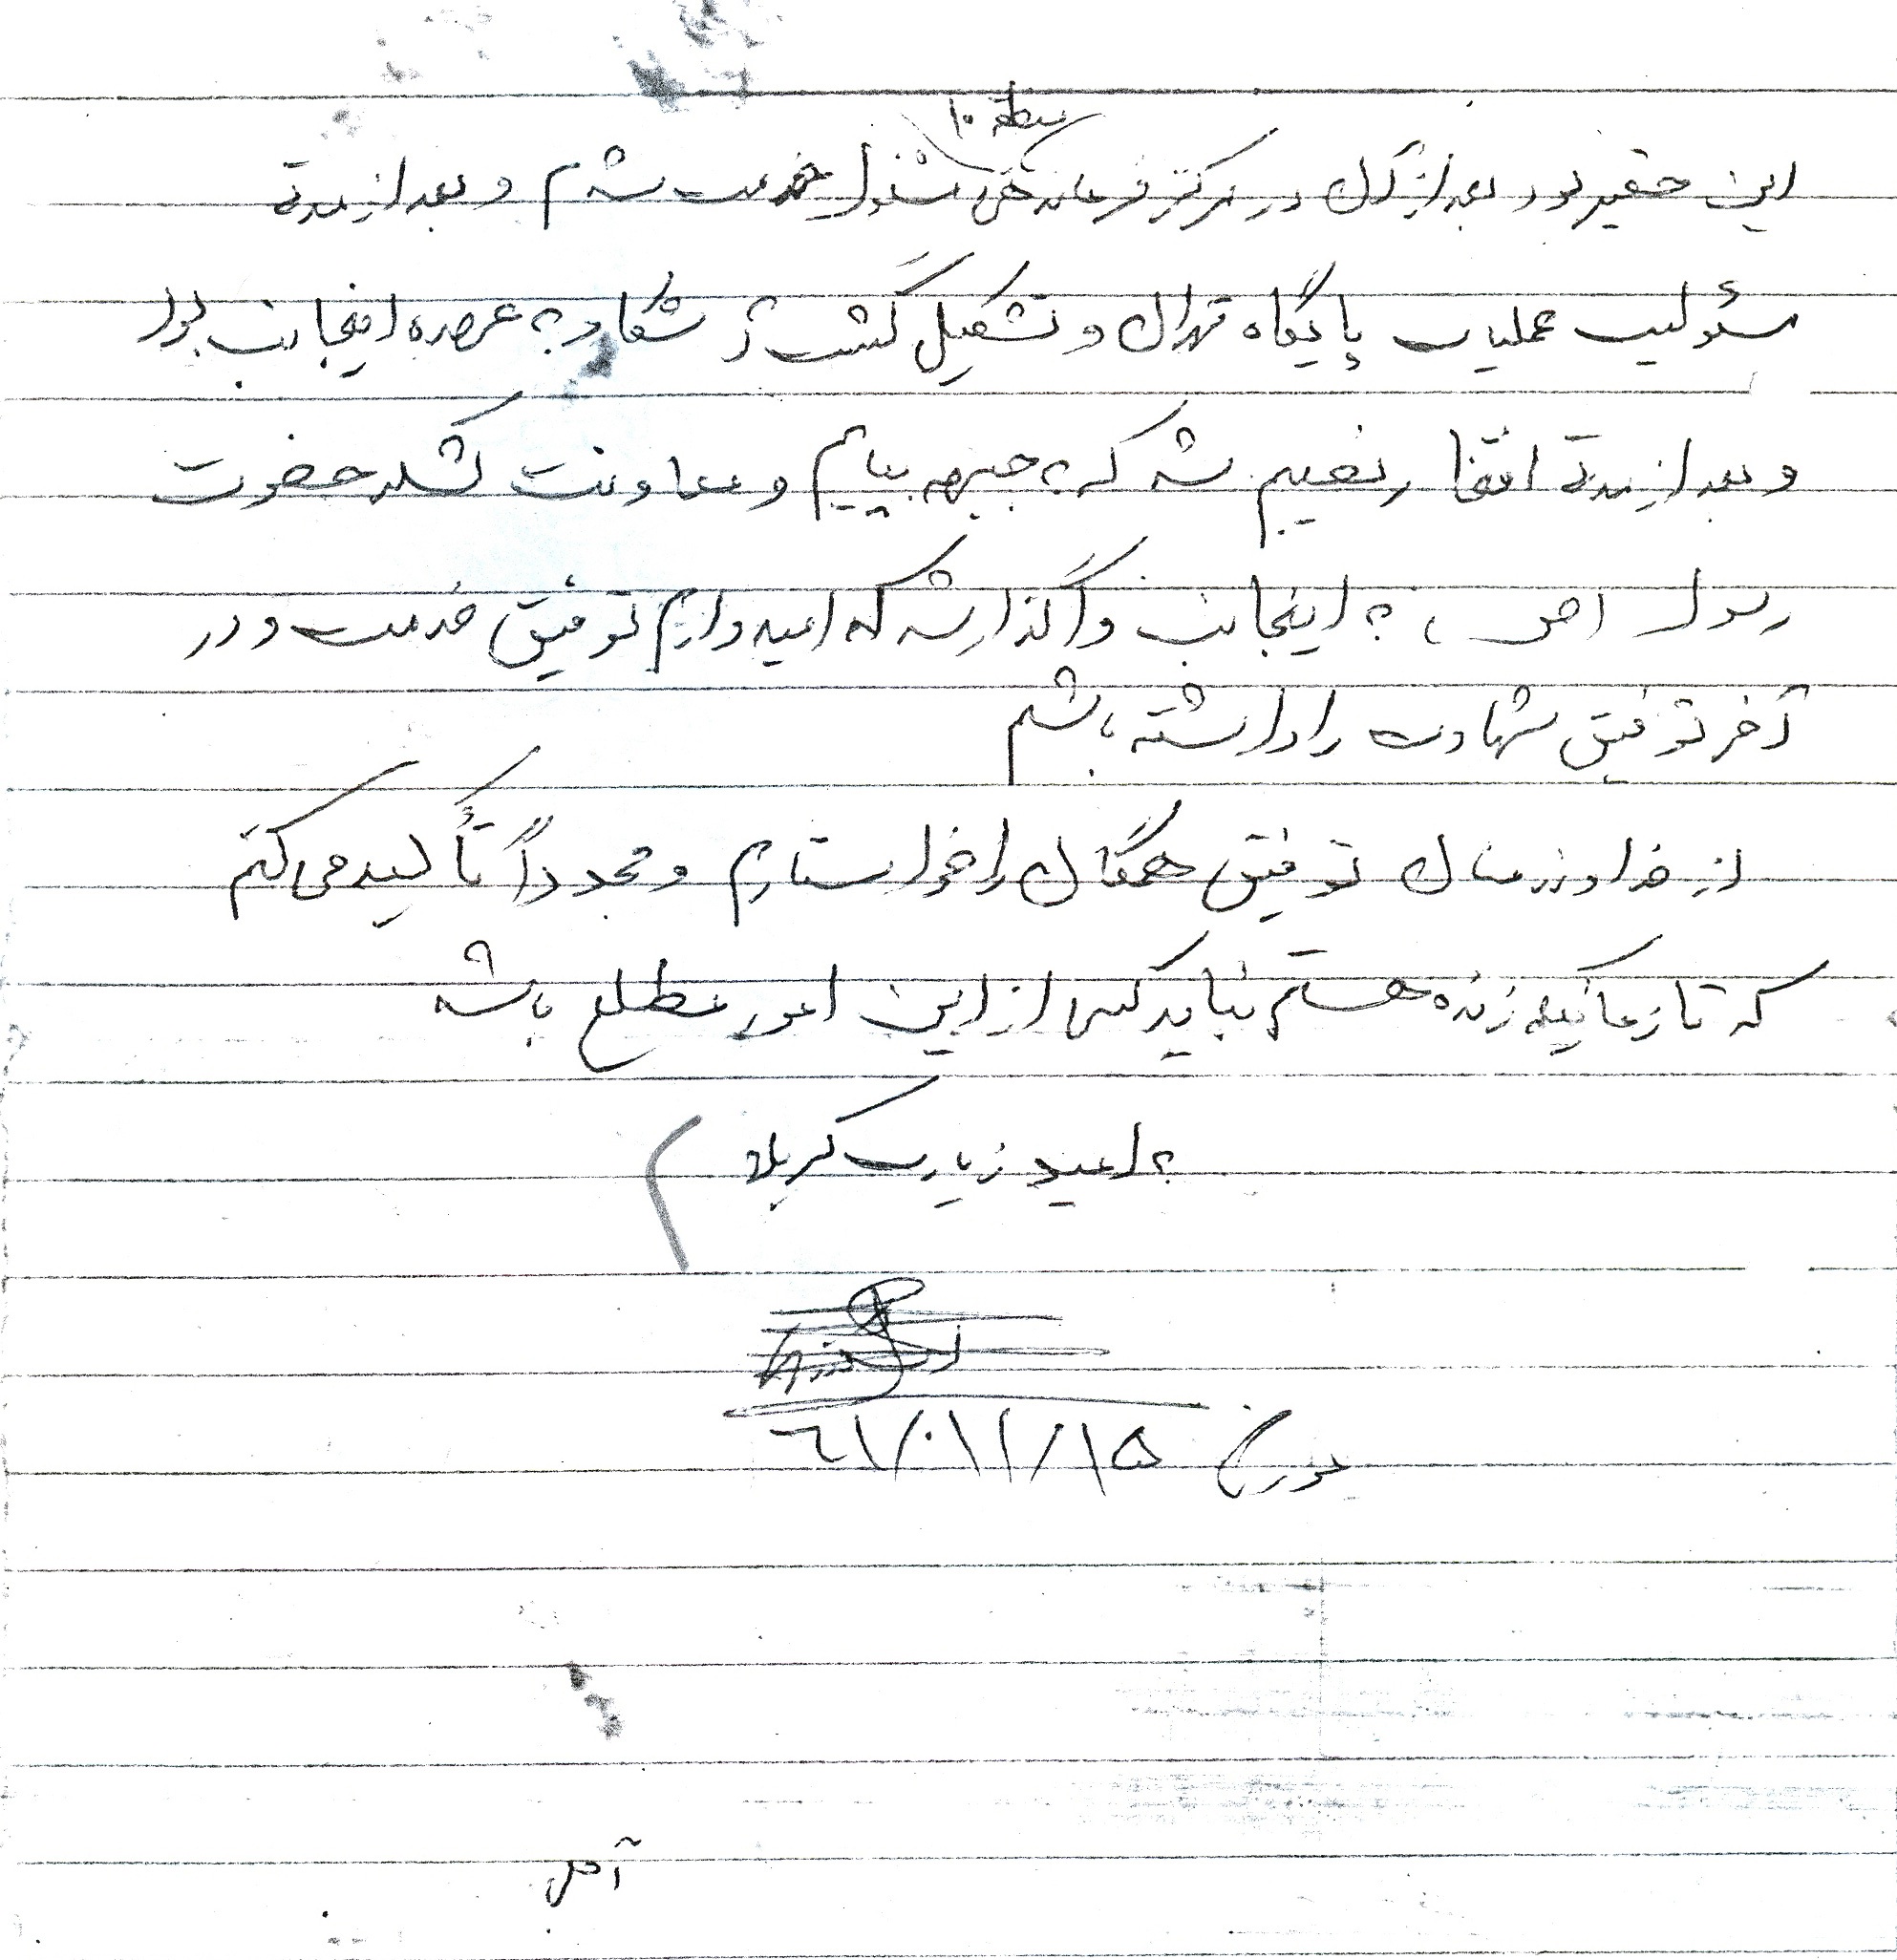 منطقه ۱۰
این حقیر بود بعد از آن در مرکز فرماندهی مشغول خدمت شدم و بعد از مدتی
مسئولیت عملیات پایگاه تهران و تشکیل گشت ثارالله به عهده اینجانب بود
و بعد از مدتی افتخار نصیبم شد که به جبهه بیایم و معاونت لشکر حضرت
رسول (ص) به اینجانب واگذار شد که امیدوارم توفیق خدمت و در
آخر توفیق شهادت را داشته باشم
از خداوند منان توفیق همگان را خواستارم و مجدداً تأکید می کنم
که تا زمانیکه زنده هستم نباید کسی از این امور مطلع باشد
به امید زیارت کربلا
مورخ ۶۱/۰۱۱/۱۵